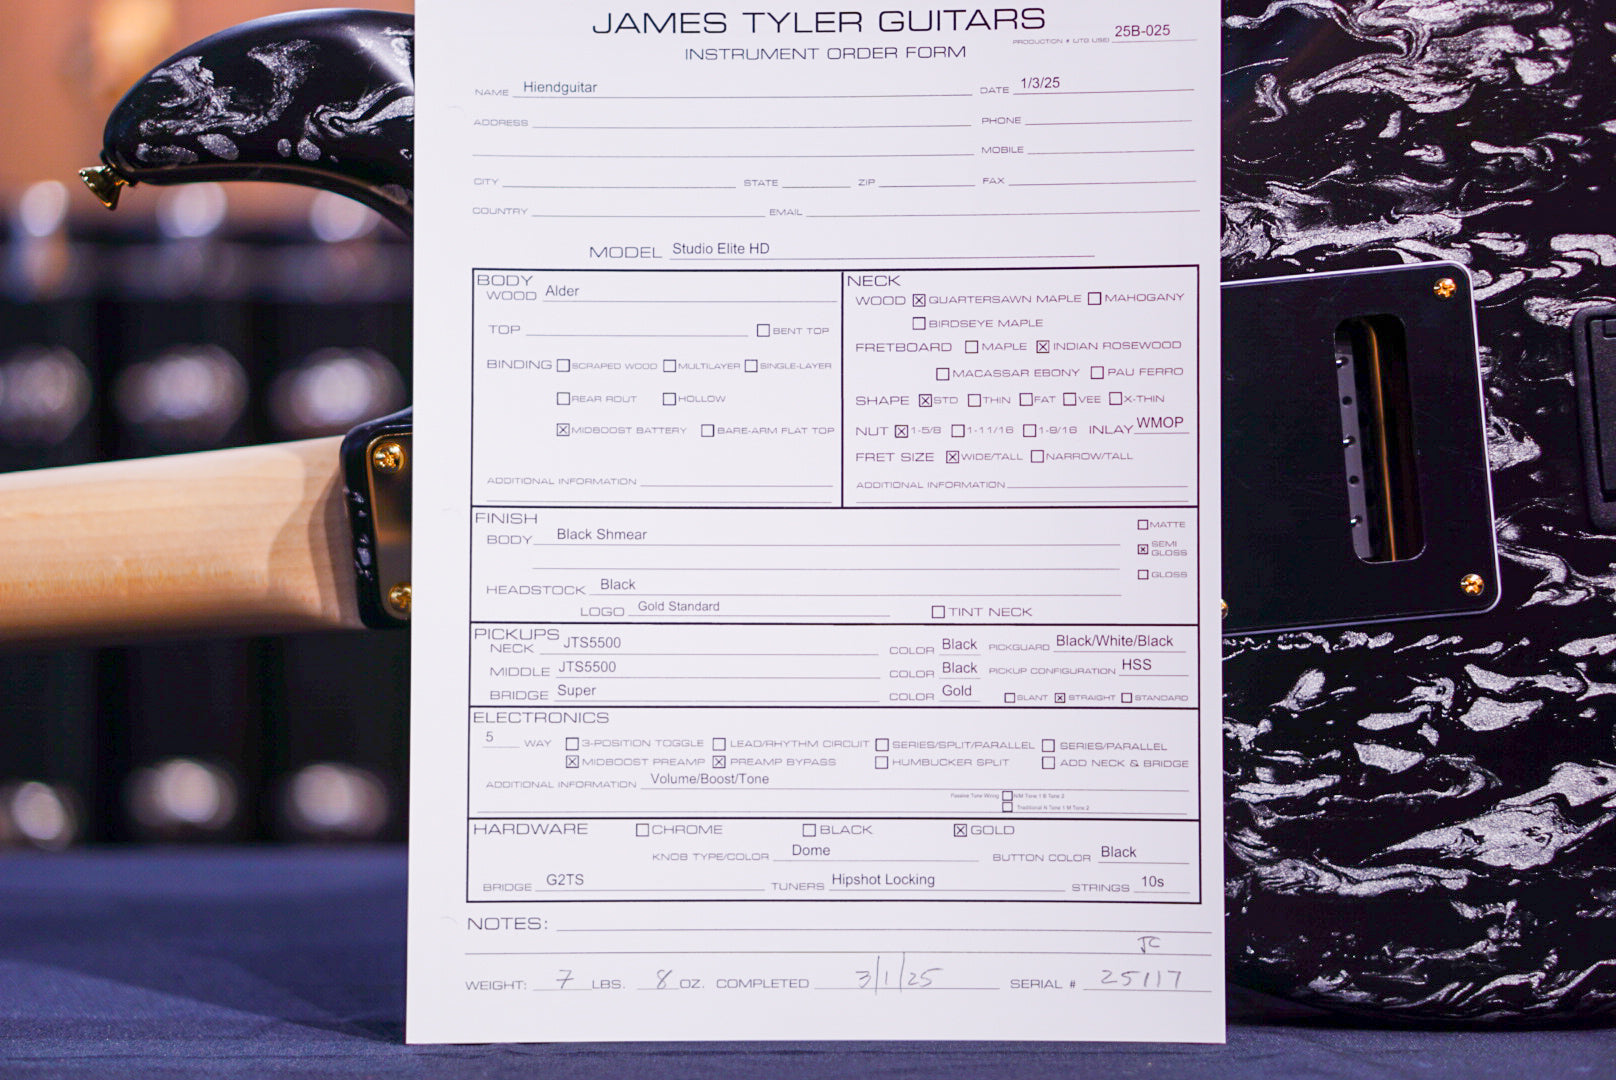 JAMES TYLER GUITARS
PRODUCTION # (JTG USE) 25B-025
INSTRUMENT ORDER FORM
NAME Hiendguitar DATE 1/3/25
ADDRESS PHONE
MOBILE
CITY STATE ZIP FAX
COUNTRY EMAIL
MODEL Studio Elite HD
BODY
WOOD Alder
TOP ☐ BENT TOP
BINDING ☐ SCRAPED WOOD ☐ MULTILAYER ☐ SINGLE-LAYER
☐ REAR ROUT ☐ HOLLOW
☒ MIDBOOST BATTERY ☐ BARE-ARM FLAT TOP
ADDITIONAL INFORMATION
NECK
WOOD ☒ QUARTERSAWN MAPLE ☐ MAHOGANY
☐ BIRDSEYE MAPLE
FRETBOARD ☐ MAPLE ☒ INDIAN ROSEWOOD
☐ MACASSAR EBONY ☐ PAU FERRO
SHAPE ☒ STD ☐ THIN ☐ FAT ☐ VEE ☐ X-THIN
NUT ☒ 1-5/8 ☐ 1-11/16 ☐ 1-9/16 INLAY WMOP
FRET SIZE ☒ WIDE/TALL ☐ NARROW/TALL
ADDITIONAL INFORMATION
FINISH
BODY Black Shmear
☐ MATTE
☒ SEMI GLOSS
☐ GLOSS
HEADSTOCK Black
LOGO Gold Standard ☐ TINT NECK
PICKUPS
NECK JTS5500 COLOR Black PICKGUARD Black/White/Black
MIDDLE JTS5500 COLOR Black PICKUP CONFIGURATION HSS
BRIDGE Super COLOR Gold ☐ SLANT ☒ STRAIGHT ☐ STANDARD
ELECTRONICS
5 WAY ☐ 3-POSITION TOGGLE ☐ LEAD/RHYTHM CIRCUIT ☐ SERIES/SPLIT/PARALLEL ☐ SERIES/PARALLEL
☒ MIDBOOST PREAMP ☒ PREAMP BYPASS ☐ HUMBUCKER SPLIT ☐ ADD NECK & BRIDGE
ADDITIONAL INFORMATION Volume/Boost/Tone
Passive Tone Wiring ☐ N/M Tone 1 B Tone 2
☐ Traditional N Tone 1 M Tone 2
HARDWARE ☐ CHROME ☐ BLACK ☒ GOLD
KNOB TYPE/COLOR Dome BUTTON COLOR Black
BRIDGE G2TS TUNERS Hipshot Locking STRINGS 10s
NOTES:
JC
WEIGHT: 7 LBS. 8 OZ. COMPLETED 3/1/25 SERIAL # 25117